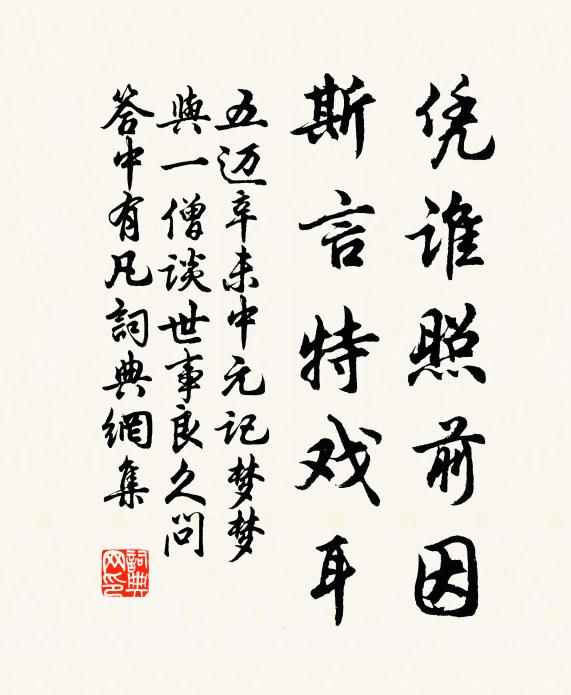 凭谁照前因
斯言特戏耳
五迈辛未中元记梦梦
與一僧谈世事良久问
答中有凡詞典網集
詞典
网印